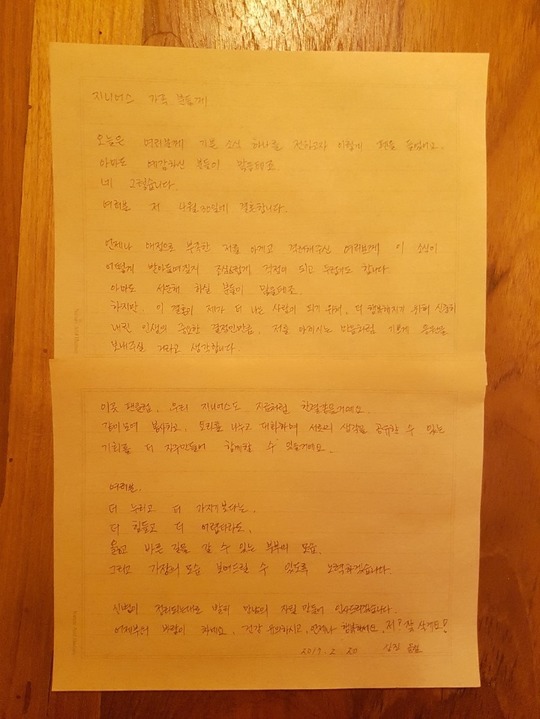 지니어스 가족 분들께
오늘은 여러분께 기쁜 소식 하나를 전하고자 이렇게 펜을 들었어요.
아마도 예감하신 분들이 많을테죠
네 그렇습니다.
여러분 저 4월 30일에 결혼합니다.
언제나 애정으로 부족한 저를 아끼고 격려해주신 여러분께 이 소식이
어떻게 받아들여질지 조심스럽게 걱정이 되고 두렵기도 합니다
아마도 서운해 하실 분들이 많을테죠.
하지만, 이 결혼이 제가 더 나은 사람이 되기 위해, 더 행복해지기 위해 신중히
내린 인생의 중요한 결정인만큼, 저를 아끼시는 마음처럼 기쁘게 응원을
보내주실 거라고 생각합니다.
이곳 팬클럽, 우리 지니어스도 지금처럼 한결같을거예요.
같이모여 봉사하고, 모리를 나누고 대화하며 서로의 생각을 공유할 수 있는
기회를 더 자주만들어 함께할 수 있을거예요.
여러분.
더 누리고 더 가지기보다는.
더 힘들고 더 어렵더라도,
옳고 바른 길을 갈 수 있는 부부의 모습,
그리고 가장의 모습 보여드릴 수 있도록 노력하겠습니다
신변이 정리되는대로 빨리 만남의 자릴 만들어 인사드리겠습니다.
어제부터 바람이 차네요. 건강 유의하시고, 언제나 행복하세요. 저? 잘 살게요!
2017. 2. 20